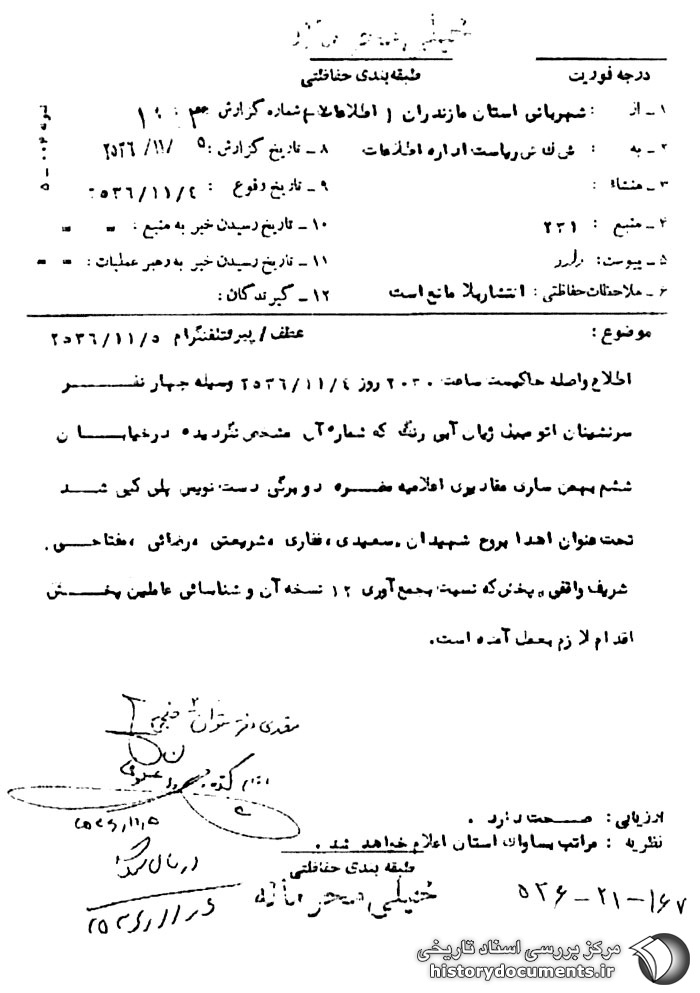 خیلی محرمانه
درجه فوریت
طبقه بندی حفاظتی
۱ـ از : شهربانی استان مازندران ( اطلاعات )
شماره گزارش
۲ـ به : ش ک ش ریاست اداره اطلاعات
۸ ـ تاریخ گزارش : ۲۵۳۶/۱۱/۵
۳ـ منشاء :
۹ ـ تاریخ وقوع : ۲۵۳۶/۱۱/۴
۴ـ منبع : ۲۳۱
۱۰ ـ تاریخ رسیدن خبر به منبع : = =
۵ ـ پیوست : دارد
۱۱ ـ تاریخ رسیدن خبر به رهبر عملیات : = =
۶ ـ ملاحظات حفاظتی : انتشار بلا مانع است
۱۲ ـ گیرندگان :
موضوع :
عطف / پیرو تلفنگرام ۲۵۳۶/۱۱/۵
اطلاع واصله حاکیست ساعت ۲۰۳۰ روز ۲۵۳۶/۱۱/۴ وسیله چهار نفــــر
سرنشینان اتومبیل ژیان آبی رنگ که شماره آن مشخص نگردیده درخیابـــان
ششم بهمن ساری مقادیری اعلامیه مضره دو برگی دست نویس پلی کپی شــد
تحت عنوان اهدا بروح شهیدان . سعیدی ، غفاری ، شریعتی ، رضائی ، مفتاحــی ،
شریف واقفی ، پخش که نسبت بجمع آوری ۱۲ نسخه آن و شناسائی عاملین پخــش
اقدام لازم بعمل آمده است.
۲۵۳۶/۱۱/۵
ارزیابی : صــحت دارد .
نظریه : مراتب بساواک استان اعلام خواهد شد .
طبقه بندی حفاظتی
خیلی محرمانه
۵۳۶-۲۱-۱۶۷
مرکز بررسی اسناد تاریخی
historydocuments.ir